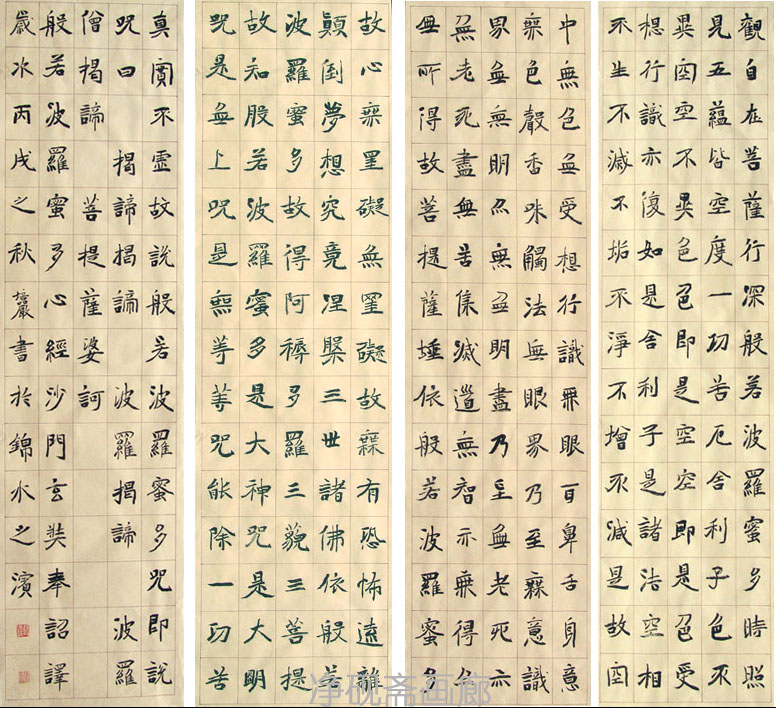 觀自在菩薩行深般若波羅蜜多時照
見五蘊皆空度一切苦厄舍利子色不
異空空不異色色即是空空即是色受
想行識亦復如是舍利子是諸法空相
不生不滅不垢不淨不增不減是故空
中無色無受想行識無眼耳鼻舌身意
無色聲香味觸法無眼界乃至無意識
界無無明亦無無明盡乃至無老死亦
無老死盡無苦集滅道無智亦無得以
無所得故菩提薩埵依般若波羅蜜多
故心無罣礙無罣礙故無有恐怖遠離
顛倒夢想究竟涅槃三世諸佛依般若
波羅蜜多故得阿耨多羅三藐三菩提
故知般若波羅蜜多是大神咒是大明
咒是無上咒是無等等咒能除一切苦
真實不虛故說般若波羅蜜多咒即說
咒曰 揭諦揭諦 波羅揭諦 波羅
僧揭諦 菩提薩婆訶
般若波羅蜜多心經沙門玄奘奉詔譯
歲次丙戌之秋書於錦水之濱
净砚斋画廊